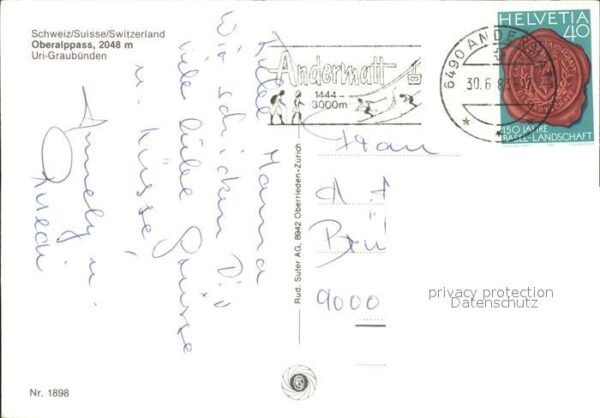 Schweiz/Suisse/Switzerland
Oberalppass, 2048 m
Uri-Graubünden
Liebe Mamma
Wir schicken Dir
viele liebe Grüsse
u. Küsse!
Annely u.
Ruedi
Andermatt
1444 —
3000m
6490 ANDERMATT
30.6.83
HELVETIA
40
150 JAHRE
BASEL-LANDSCHAFT
Frau
A. 
Brü
9000
privacy protection
Datenschutz
Rud. Suter AG, 8942 Oberrieden-Zürich
Nr. 1898